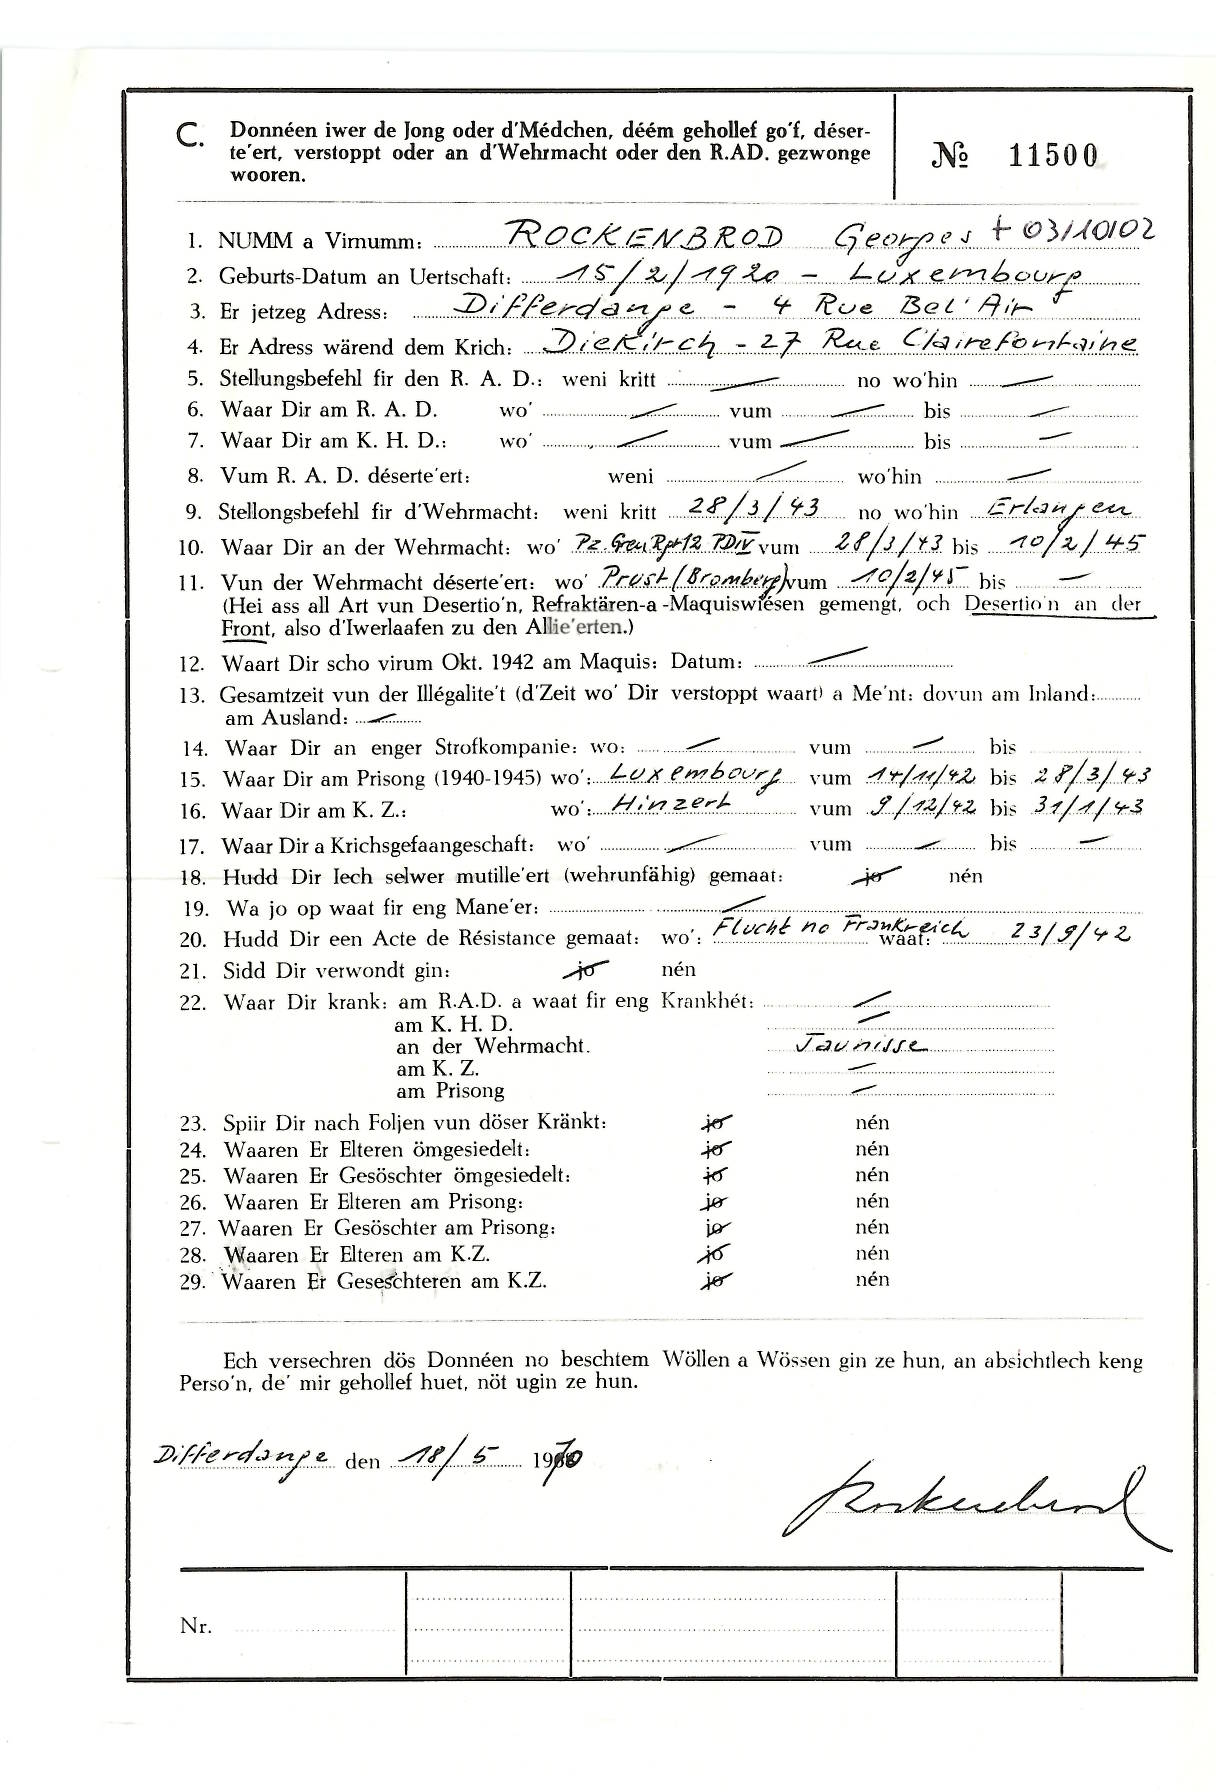 C. Donnéen iwer de Jong oder d'Médchen, déém gehollef go'f, déser-
te'ert, verstoppt oder an d'Wehrmacht oder den R.AD. gezwonge
wooren.
№ 11500
1. NUMM a Virnumm: ROCKENBROD Georges + 03/10/02
2. Geburts-Datum an Uertschaft: 15/2/1920 - Luxembourg
3. Er jetzeg Adress: Differdange - 4 Rue Bel'Air
4. Er Adress wärend dem Krich: Diekirch - 27 Rue Clairefontaine
5. Stellungsbefehl fir den R. A. D.: weni kritt — no wo'hin —
6. Waar Dir am R. A. D. wo' — vum — bis —
7. Waar Dir am K. H. D.: wo' — vum — bis —
8. Vum R. A. D. déserte'ert: weni — wo'hin —
9. Stellongsbefehl fir d'Wehrmacht: weni kritt 28/3/43 no wo'hin Erlangen
10. Waar Dir an der Wehrmacht: wo' Pz. Gren Rgt 12 PDIV vum 28/3/43 bis 10/2/45
11. Vun der Wehrmacht déserte'ert: wo' Prust (Bromberg) vum 10/2/45 bis —
(Hei ass all Art vun Desertio'n, Refraktären-a -Maquiswiesen gemengt, och Desertio'n an der
Front, also d'Iwerlaafen zu den Allie'erten.)
12. Waart Dir scho virum Okt. 1942 am Maquis: Datum: —
13. Gesamtzeit vun der Illégalite't (d'Zeit wo' Dir verstoppt waart) a Me'nt: dovun am Inland:
am Ausland: —
14. Waar Dir an enger Strofkompanie: wo: — vum — bis
15. Waar Dir am Prisong (1940-1945) wo': Luxembourg vum 14/11/42 bis 28/3/43
16. Waar Dir am K. Z.: wo': Hinzert vum 9/12/42 bis 31/1/43
17. Waar Dir a Krichsgefaangeschaft: wo' — vum — bis —
18. Hudd Dir Iech selwer mutille'ert (wehrunfähig) gemaat: jo nén
19. Wa jo op waat fir eng Mane'er: —
20. Hudd Dir een Acte de Résistance gemaat: wo': Flucht no Frankreich waat: 23/9/42
21. Sidd Dir verwondt gin: jo nén
22. Waar Dir krank: am R.A.D. a waat fir eng Krankhét: —
am K. H. D. —
an der Wehrmacht. Jaunisse
am K. Z. —
am Prisong —
23. Spiir Dir nach Foljen vun döser Kränkt: jo nén
24. Waaren Er Elteren ömgesiedelt: jo nén
25. Waaren Er Gesöschter ömgesiedelt: jo nén
26. Waaren Er Elteren am Prisong: jo nén
27. Waaren Er Gesöschter am Prisong: jo nén
28. Waaren Er Elteren am K.Z. jo nén
29. Waaren Er Geseschteren am K.Z. jo nén
Ech versechren dös Donnéen no beschtem Wöllen a Wössen gin ze hun, an absichtlech keng
Perso'n, de' mir gehollef huet, nöt ugin ze hun.
Differdange den 18/5 1970
Rockenbrod
Nr.